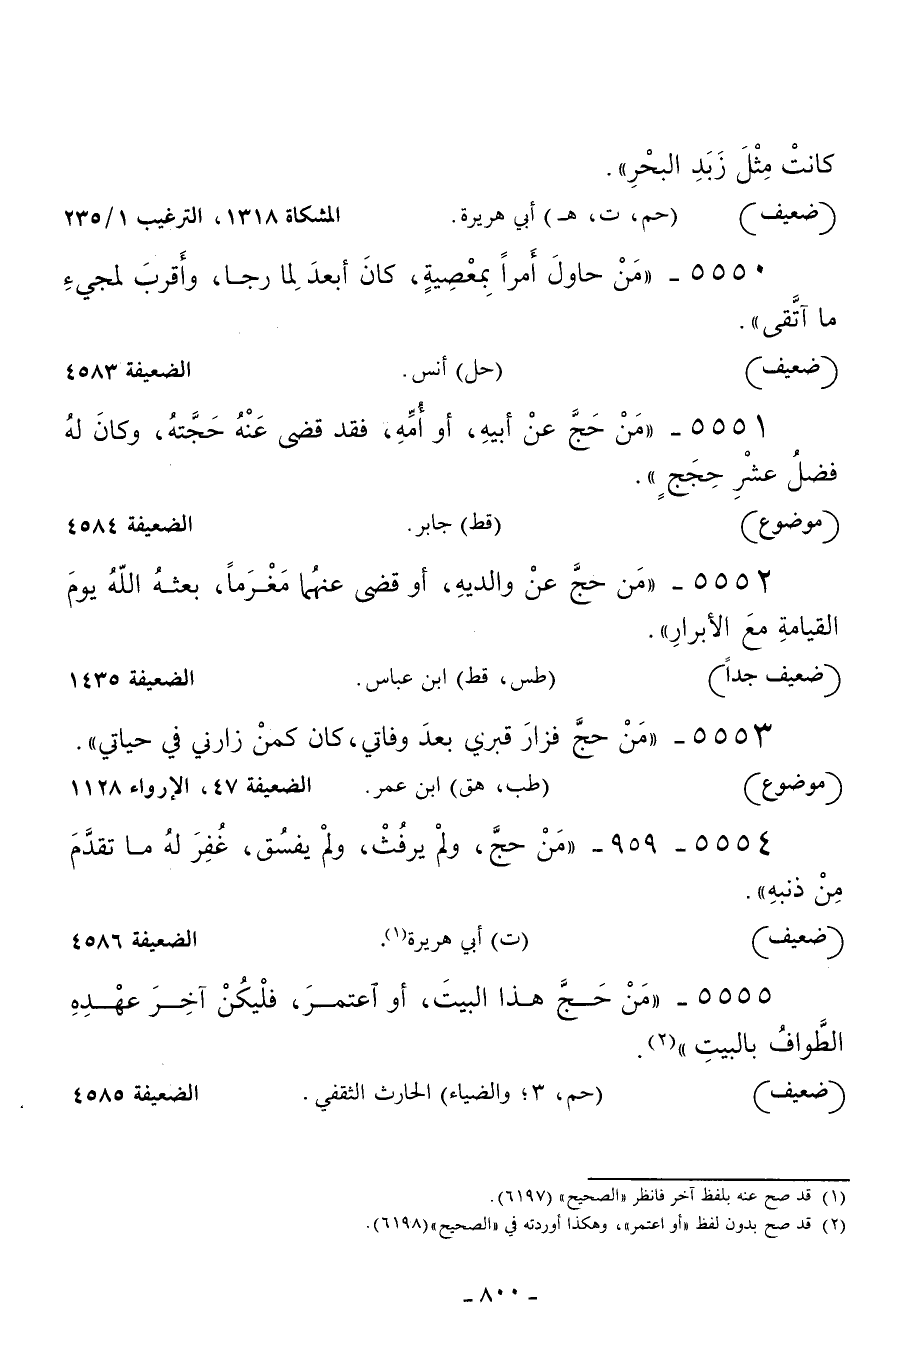 كانتْ مِثْلَ زَبَدِ البحْرِ».
(ضعيف) (حم، ت، هـ) أبي هريرة. المشكاة ١٣١٨، الترغيب ٢٣٥/١
٥٥٥٠ ـ «مَنْ حاولَ أَمراً بِمعْصِيةٍ، كانَ أبعدَ لِما رجـا، وأَقربَ لمجيءِ
ما آتَّقى».
(ضعيف) (حل) أنس. الضعيفة ٤٥٨٣
٥٥٥١ ـ «مَنْ حَجَّ عنْ أبيهِ، أو أُمِّهِ، فقد قضى عَنْهُ حَجَّتهُ، وكانَ لهُ
فضلُ عشْرِ حِجَجٍ».
(موضوع) (قط) جابر. الضعيفة ٤٥٨٤
٥٥٥٢ ـ «مَن حجَّ عنْ والديهِ، أو قضى عنهُما مَغْرَماً، بعثـهُ اللّهُ يومَ
القيامةِ معَ الأبرارِ».
(ضعيف جداً) (طس، قط) ابن عباس. الضعيفة ١٤٣٥
٥٥٥٣ ـ «مَنْ حجَّ فزارَ قبري بعدَ وفاتي، كان كمنْ زارني في حياتي».
(موضوع) (طب، هق) ابن عمر. الضعيفة ٤٧، الإرواء ١١٢٨
٥٥٥٤ ـ ٩٥٩ ـ «مَنْ حجَّ، ولمْ يرفُثْ، ولمْ يفسُق، غُفِرَ لهُ مـا تقدَّمَ
مِنْ ذنبهِ».
(ضعيف) (ت) أبي هريرة(١). الضعيفة ٤٥٨٦
٥٥٥٥ ـ «مَنْ حَـجَّ هـذا البيتَ، أو آعتمـرَ، فلْيكُنْ آخِـرَ عهْـدِهِ
الطَّوافُ بالبيتِ»(٢).
(ضعيف) (حم، ٣؛ والضياء) الحارث الثقفي. الضعيفة ٤٥٨٥
(١) قد صح عنه بلفظ آخر فانظر «الصحيح» (٦١٩٧).
(٢) قد صح بدون لفظ «أو اعتمر»، وهكذا أوردته في «الصحيح»(٦١٩٨).
ـ ٨٠٠ ـ